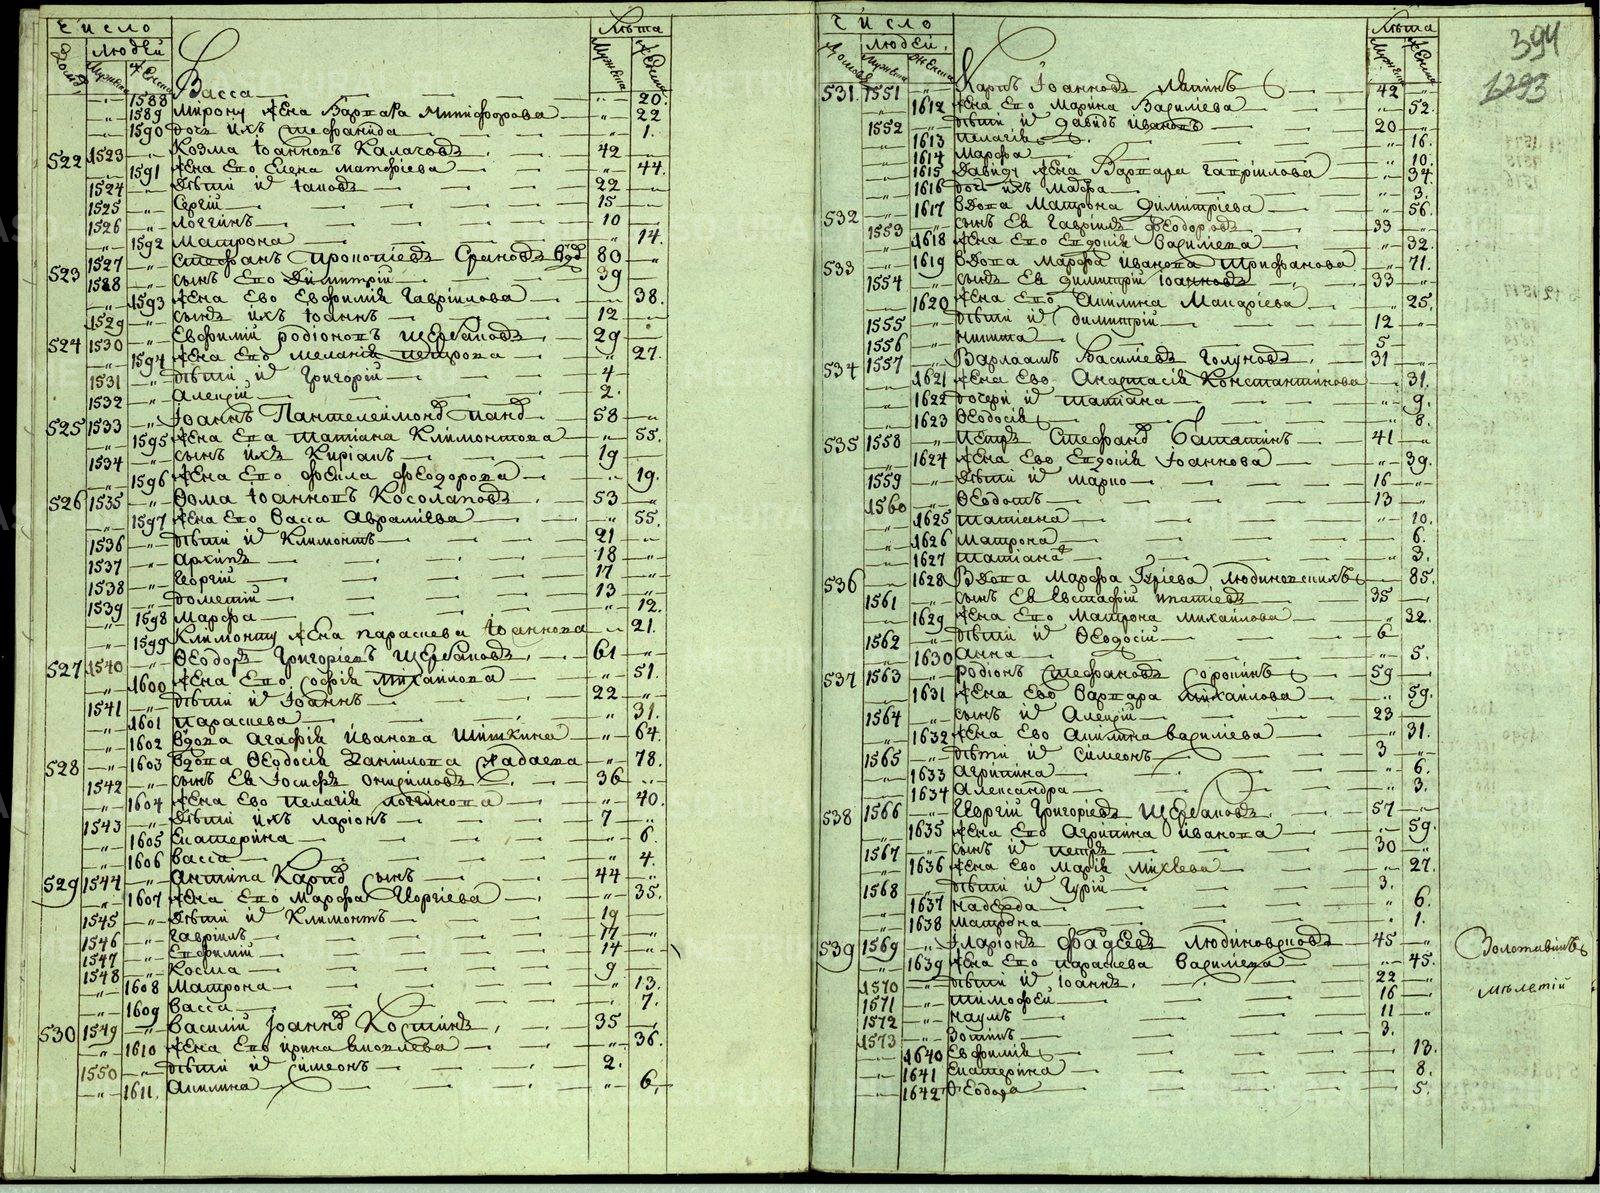 Число
Лѣта
людей
1588 Васса 20.
1589 Мирону жена Варвара Никифорова 22
1590 дочь ихъ Стефанида 1.
522 1523 Козма Іоанновъ Калачовъ 42
1591 жена его Елена Матфіева 44.
1524 дѣти их 22
1525 Сергій 15
1526 Логгинъ 10
1592 Матрона 14.
523 1527 Стефанъ Прокопіевъ 80
1528 сынъ его Димитрій 39
1593 жена ево Евфимія Гавріилова 38.
1529 сынъ ихъ Іоаннъ 12
524 1530 Евфимій Родіоновъ Щербаковъ 29
1594 жена его Меланія Петрова 27.
1531 дѣти их Григорій 4
1532 Алексій 2.
525 1533 Іоаннъ Пантелеймоно 58
1595 жена ева Татіана Климонтова 55.
1534 сынъ ихъ Киріакъ 19
1596 жена его Ѳеодорова 19.
526 1535 Ѳома Іоанновъ Косолаповъ 53
1597 жена его Васса Авраміева 55.
1536 дѣти их Климонтъ 21
1537 Архипъ 18
1538 Георгій 17
1539 Дометій 13
1598 Марфа 12.
1599 Климонту жена Параскева Іоаннова 21.
527 1540 Ѳеодоръ Григоріевъ Щербаковъ 61
1600 жена его Софія Михаилова 51.
1541 дѣти их Іоаннъ 22
1601 Параскева 31.
1602 вдова Агафія Иванова Шишкина 64.
528 1603 вдова Ѳеодосія Даніилова 78.
1542 сынъ ея Іосифъ Онисимовъ 36
1604 жена ево Пелагія Логгинова 40.
1543 дѣти ихъ Ларіонъ 7
1605 Екатерина 6
1606 Васса 4.
529 1544 Антипа Карпо сынъ 44
1607 жена его Марфа Георгіева 35.
1545 дѣти их Климонтъ 19
1546 Гавріилъ 17
1547 Евфимій 14
1548 Косма 9
1608 Матрона 13.
1609 Васса 7.
530 1549 Василій Іоанно Костинъ 35
1610 жена его Ирина Яковлева 36.
1550 дѣти их Симеонъ 2.
1611. Акилина 6.
Число
Лѣта
людей
394
1293
531 1551 Карпъ Іоанновъ 42
1612 жена его Марина Василіева 52.
1552 дѣти их Давидъ Ивановъ 20
1613 Пелагія 16.
1614 Марфа 10.
1615 Давиду жена Варвара Гавріилова 34.
1616 дочь ихъ Мавра 3.
532 1617 вдова Матрона Димитріева 56.
1553 сынъ ея Гавріилъ Ѳеодоровъ 33
1618 жена его Евдокія Василіева 32.
533 1619 вдова Марфа Иванова Трифанова 71.
1554 сынъ ея Димитрій Іоанновъ 33
1620 жена его Акилина Макаріева 25.
1555 дѣти их Димитрій 12
1556 Никита 5
534 1557 Варлаамъ Василіевъ Голуновъ 31
1621 жена ево Анастасія Константинова 31.
1622 дочери их Татіана 9.
1623 Ѳеодосія 8.
535 1558 Петръ Стефано Баташинъ 41
1624 жена ево Евдокія Іоаннова 39.
1559 дѣти их Марко 16
1560 Ѳеодотъ 13
1625 Татіана 10.
1626 Матрона 6.
1627 Татіана 3.
536 1628 вдова Марфа Гуріева Людиновскихъ 85.
1561 сынъ ея Евстафій Ипатіевъ 35
1629 жена его Матрона Михаилова 32.
1562 дѣти их Ѳеодосій 6
1630 Анна 5.
537 1563 Родіонъ Стефановъ Сорокинъ 59
1631 жена ево Варвара Михаилова 59.
1564 сынъ их Алексій 23
1632 жена ево Акилина Василіева 31.
1565 дѣти их Симеонъ 3
1633 Агрипина 6.
1634 Александра 3.
538 1566 Георгій Григоріевъ Щербаковъ 57
1635 жена его Агрипина Иванова 59.
1567 сынъ их Петръ 30
1636 жена ево Марія Михѣева 27.
1568 дѣти их Гурій 3.
1637 Надежда 6.
1638 Матрона 1.
539 1569 Іларіонъ Фадѣевъ Людиновсковъ 45
1639 жена его Параскева Василіева 45.
Золотавинъ
1570 дѣти их Іоаннъ 22
Мелетій
1571 Тимофей 16
1572 Наумъ 11
1573 Зотикъ 3.
1640 Евфимія 13.
1641 Екатерина 8.
1642 Ѳеодора 5.